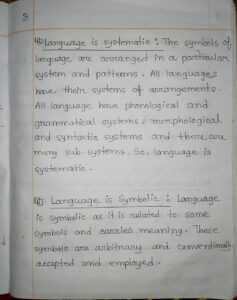 3
Language is systematic : The symbols of
language are arranged in a particular
system and patterns. All languages
have their systems of arrangements.
All language have phonological and
grammatical systems : morphological
and syntactic systems and there are
many sub-systems. So language is
systematic.
Language is Symbolic : Language
is symbolic as it is related to some
symbols and carries meaning. These
symbols are arbitrary and conventionally
accepted and employed.